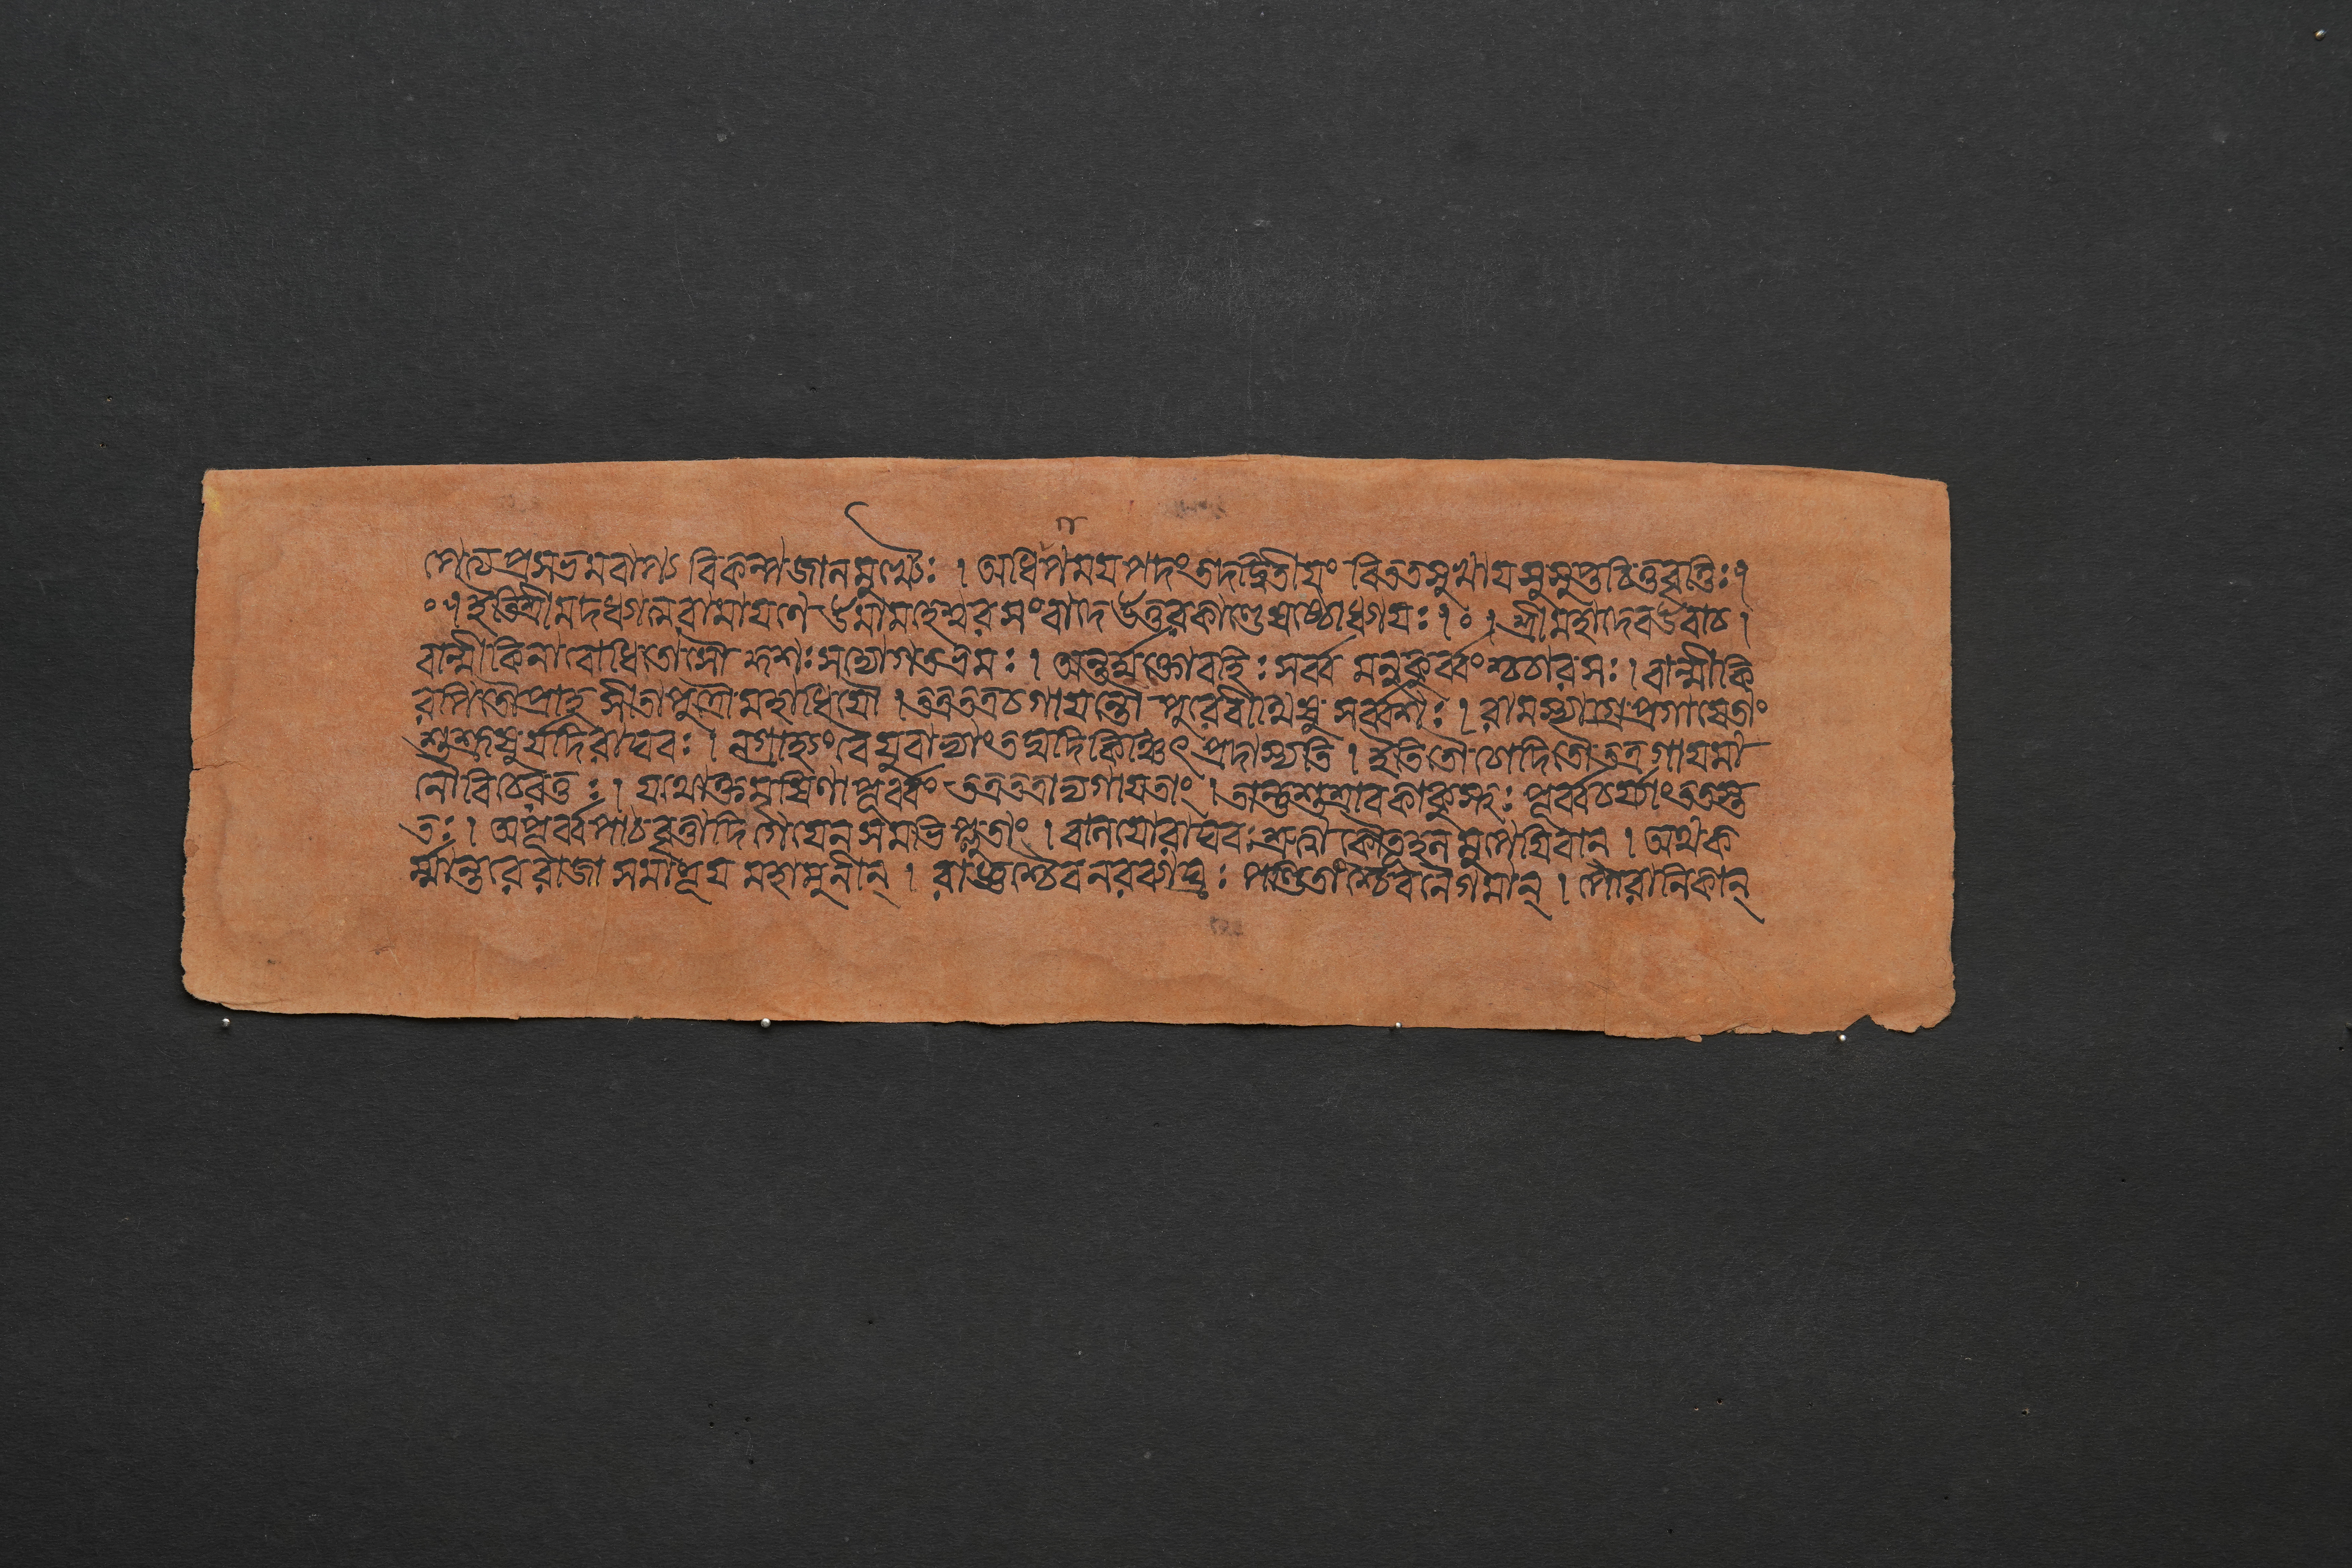 পেত্য প্রসভমবাপ্য বিকল্পজালমুচ্চৈঃ । অধিগময়পদং তদদ্বিতীয়ং বিততসুখায় সুষুপ্তচিত্তবৃত্তিঃ ।
০ । ইতি শ্রীমদধ্যাত্মরামায়ণে উমামহেশ্বরসংবাদে উত্তরকাণ্ডে ষষ্ঠোধ্যায়ঃ । ০ । শ্রীমহাদেব উবাচ ।
বাল্মীকিনা বোধিতোসৌ কুশঃ সদ্যোগতভ্রমঃ । অন্তর্মুক্তো বহিঃ সর্ব্ব মনুকুর্ব্বংশ্চচার সঃ । বাল্মীকি
রপি তৌ প্রাহ সীতাপুত্রৌ মহাধিয়ৌ । তত্রতত্র চ গায়ন্তৌ পুরে বীথিষু সর্ব্বশঃ । রামস্যাগ্রে প্রগায়েতাং
শুশ্রূষুর্যদি রাঘবঃ । নগ্রাহ্যং বৈ যুবাভ্যাং তদ্যদি কিঞ্চিৎ প্রদাস্যতি । ইতি তৌ চোদিতৌ তত্র গায়মা
নৌ বিচেরতুঃ । যথোক্তমৃষিণা পূর্ব্বং তত্রতত্রাভ্যগায়তাং । তান্তু শুশ্রাব কাকুৎস্থঃ পূর্ব্বচর্য্যাং ততস্ত
তঃ । অপূর্ব্বপাঠবৃত্তাদি গেয়েন সমভিপ্লুতাং । বালয়ো রাঘবঃ শ্রুত্বা কৌতূহলমুপেয়িবান্ । অথ ক
র্ম্মান্তরে রাজা সমাহূয় মহামুনীন্ । রাজ্ঞশ্চৈব নরব্যাঘ্রঃ পণ্ডিতাংশ্চৈব নৈগমান্ । পৌরানিকান্